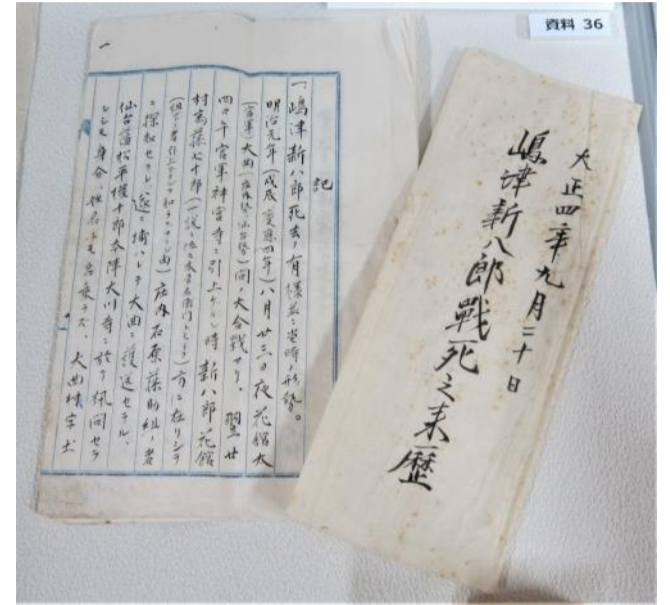 資料 36
大正四年九月二十日
嶋津新八郎戰死之来歴
記
一、嶋津新八郎死去ノ有樣並ニ當時ノ形勢。
明治元年(戊辰 慶應四年)八月廿三日夜花舘大
(官軍)大曲(庄内勢 仙台勢)間ノ大合戦アリ。翌廿
四日午官軍神宮寺ニ引上ケシ時新八郎ノ花舘
村髙藤七十郎(一説ニ佐々木
方ニ在リシヲ
庄内石原藤助組ノ者
ニ探知セラレ、遂ニ捕ハレテ大曲ニ護送セラル、
仙台藩松平權十郎本陣大川寺ニ於テ糺問セラ
レシモ身分、姓名トモ名乗ラズ、大曲村字土